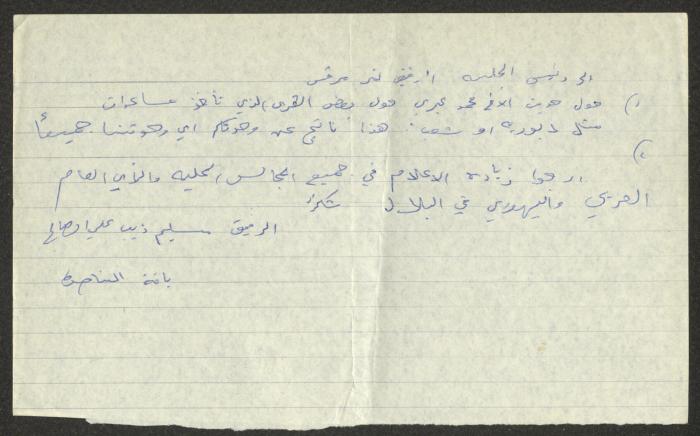 الى رئيس الجلسه الرفيق نمر مرقس
١) حول حديث الاخ محمد حول بعض القرى الذي تأخذ مساعدات
مثل دبوريه او شعب. هذا ناتج عن وحدتكم اي وحدتنا جميعاً
٢)
ارجوا زيادة الاعلام في جميع المجالس المحليه والرأي العام
العربي واليهودي في البلاد شكراً
الرفيق سليم ذيب علي صالح
يافة الناصرة